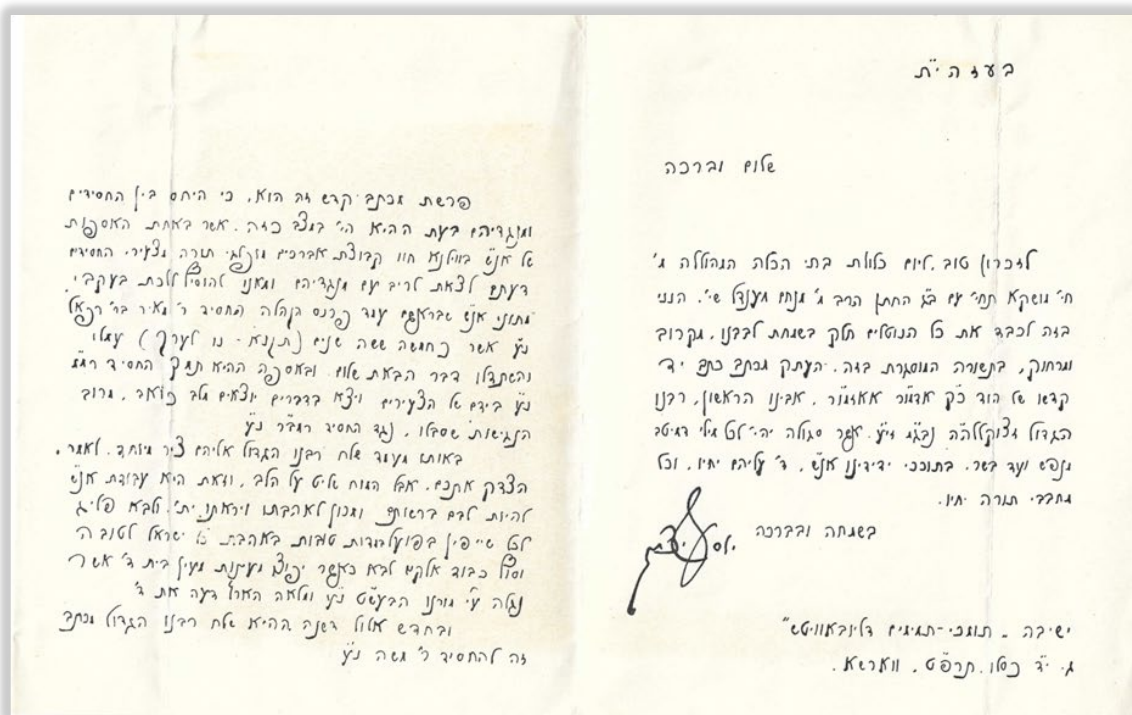 בעזהי״ת
שלום וברכה
לזכרון טוב. ליום כלולת בתי הכלה המהוללה מ׳
חי׳ מושקא תחי׳ עם ב״ג החתן הרב מ׳ מנחם מענדל שי׳. הנני
בזה לכבד את כל הנוטלים חלק בשמחת לבבנו, מקרוב
ומרחוק, בתשורה המוסגרת בזה. העתק מכתב כתב יד
קדשו של הוד כ״ק אדמו״ר אאזמו״ר. אבינו הראשון, רבנו
הגדול זצוקללה״ה נבג״מ זי״ע. אשר סגולה יהי׳ לכל מילי דמיטב
מנפש ועד בשר. בתוככי ידידינו אנ״ש, ד׳ עליהם יחיו, וכל
מחבבי תורה יחיו.
בשמחה ובברכה
ישיבה - תומכי-תמימים דליובאוויטש״
ג. י״ד כסלו. תרפ״ט. ווארשא.
פרשת מכתב קדש זה הוא. כי היחס בין החסידים
ומנגדיהם בעת ההיא הי׳ במצב כזה. אשר באחת האספות
של אנ״ש בווילנא חוו קבוצת אברכים מופלגי תורה מצעירי החסידים
דעתם לצאת לריב עם מנגדיהם ומאנו להוסיף ללכת בעקבי
מתוני אנ״ש שבראשם עמד פרנס הקהלה החסיד ר׳ מאיר בר׳ רפאל
נ״ע אשר כחמשה ששה שנים (תקנ״א - נו לערך) עמלו
והשתדלו דבר הבאת שלום. ובאספה ההיא תמך החסיד
נ״ע בידם של הצעירים ויצא בדברים יוצאים מלב כואב. מרוב
הנגישות שסבלו, נגד החסיד נ״ע
באותו מעמד שלח רבנו הגדול אליהם ציר מיוחד. לאמר.
הצדק אתכם. אבל המוח שליט על הלב. וזאת היא עבודת אנ״ש
להיות לבם ברשותם ומכון לאהבתו ויראתו ית׳. ולבא
לכל בפועל מדות טובות באהבת ישראל לטוב ה׳
וסוף כבוד אלקים לבא כאשר יפוצו מעינות מעין בית ד׳ אשר
נגלה ע״י מורנו הבעש״ט נ״ע ומלאה הארץ דעה את ד׳
ובחדש אלול דשנה ההיא שלח רבנו הגדול מכתב
זה להחסיד ר׳ משה נ״ע